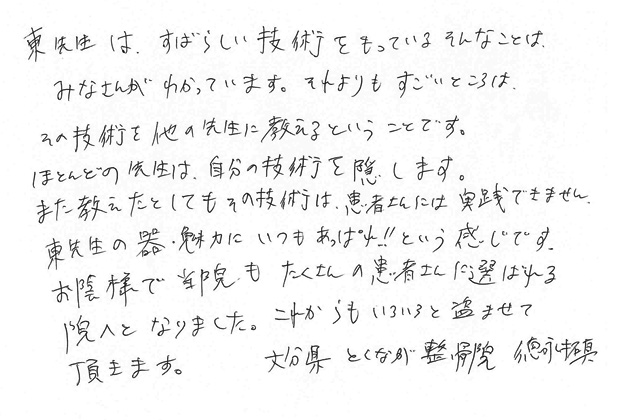 東先生は、すばらしい技術をもっているそんなことは、
みなさんがわかっています。それよりもすごいところは、
その技術を他の先生に教えるということです。
ほとんどの先生は、自分の技術を隠します。
また教えたとしてもその技術は、患者さんには実践できません。
東先生の器・魅力にいつもあっぱれ!!という感じです。
お陰様で当院もたくさんの患者さんに選ばれる
院へとなりました。これからもいろいろと盗ませて
頂きます。 大分県 とくなが整骨院 徳永